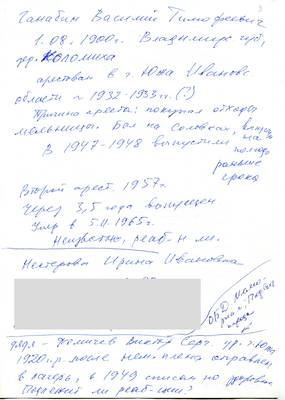 Ганабин Василий Тимофеевич
1.08.1900г. Владимирс. губ,
дер. Коломиха
арестован в г. Южа Ивановс
области ~ 1932-1933гг. (?)
Причина ареста: покупал отходы
мельницы. Был на Соловках, выпус
на
В 1947-1948 выпустили
полгода
раньше
срока
Второй арест 1957г.
Через 3,5 года выпущен
Умер в 5.11.1965г.
Неизвестно, реаб-н ли.
Нестерова Ирина Ивановна
ОБД Мемо-
риал, Подвиг
народа
дядя - Виктор Серг. ур. г. Южа
1920г.р после нем. плена отправлен
в лагерь, в 1949 списан по здоровью
Подлежит ли реаб-ции?